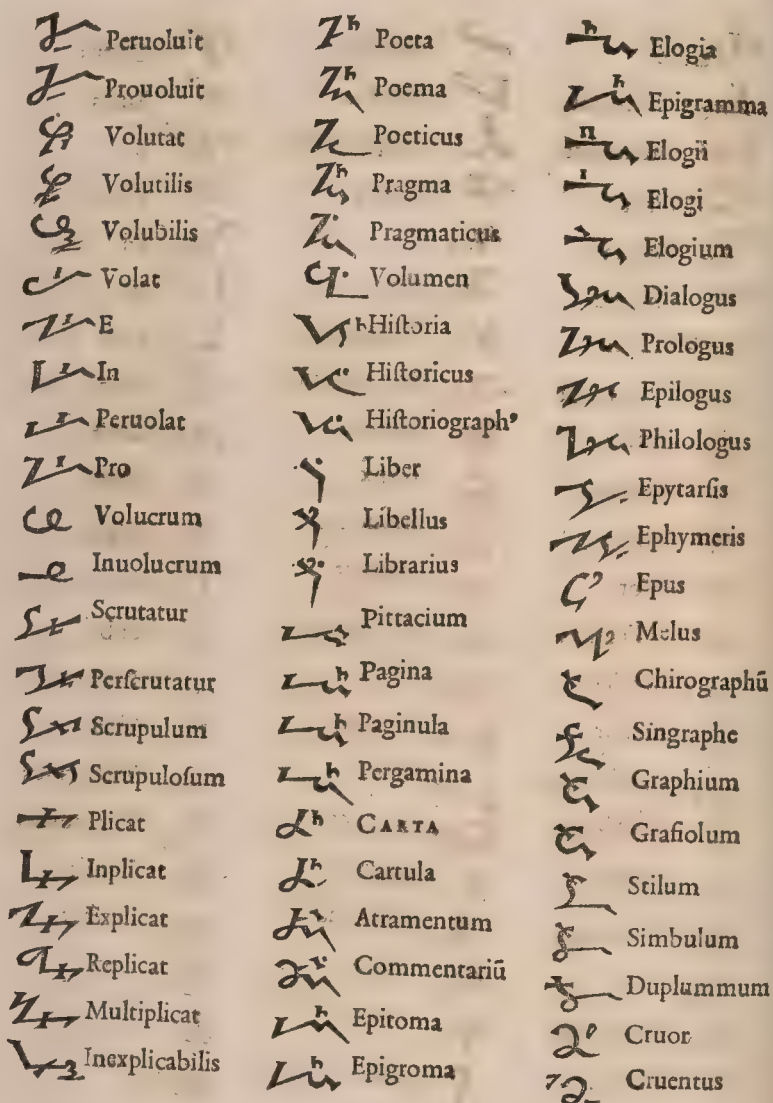 Peruoluit
Prouoluit
Volutat
Volutilis
Volubilis
Volat
E
In
Peruolat
Pro
Volucrum
Inuolucrum
Scrutatur
Perſcrutatur
Scrupulum
Scrupuloſum
Plicat
Inplicat
Explicat
Replicat
Multiplicat
Inexplicabilis
Poeta
Poema
Poeticus
Pragma
Pragmaticus
Volumen
Hiſtoria
Hiſtoricus
Hiſtoriographꝰ
Liber
Libellus
Librarius
Pittacium
Pagina
Paginula
Pergamina
CARTA
Cartula
Atramentum
Commentariū
Epitoma
Epigroma
Elogia
Epigramma
Elogii
Elogi
Elogium
Dialogus
Prologus
Epilogus
Philologus
Epytarſis
Ephymeris
Epus
Melus
Chirographū
Singraphe
Graphium
Grafiolum
Stilum
Simbulum
Duplummum
Cruor
Cruentus